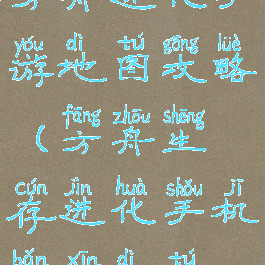 yóu dì tú gōng lüè
游地图攻略
fāng zhōu shēng
(方舟生
cún jìn huà shǒu jī
存进化手机
bǎn xīn dì tú